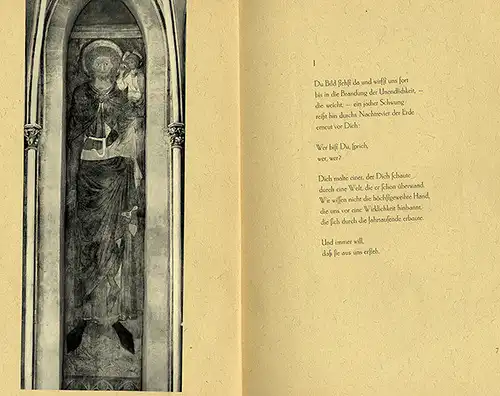 I
Du Bild stehst da und wirfst uns fort
bis in die Brandung der Unendlichkeit, —
die weicht; — ein jacher Schwung
reißt hin durchs Nachtrevier der Erde
erneut vor Dich:
Wer bist Du, sprich,
wer, wer?
Dich malte einer, der Dich schaute
durch eine Welt, die er schon überwand.
Wir wissen nicht die höchstgeweihte Hand,
die uns vor eine Wirklichkeit hinbannt,
die sich durch die Jahrtausende erbaute.
Und immer will,
daß sie aus uns ersteh.
7